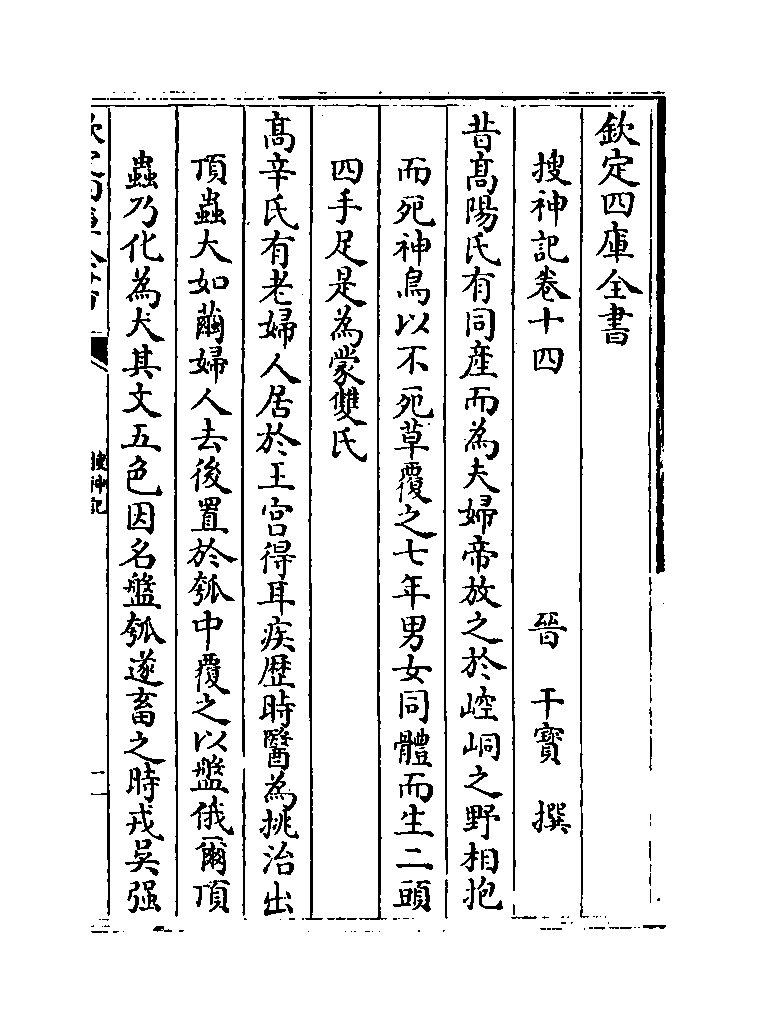 欽定四庫全書
搜神記卷十四
晉　干寶　撰
昔髙陽氏有同産而為夫婦帝放之於崆峒之野相抱
而死神鳥以不死草覆之七年男女同體而生二頭
四手足是為蒙雙氏
髙辛氏有老婦人居於王宫得耳疾歴時醫為挑治出
頂蟲大如繭婦人去後置於瓠中覆之以盤俄爾頂
蟲乃化為犬其文五色因名盤瓠遂畜之時戎吴强
搜神記